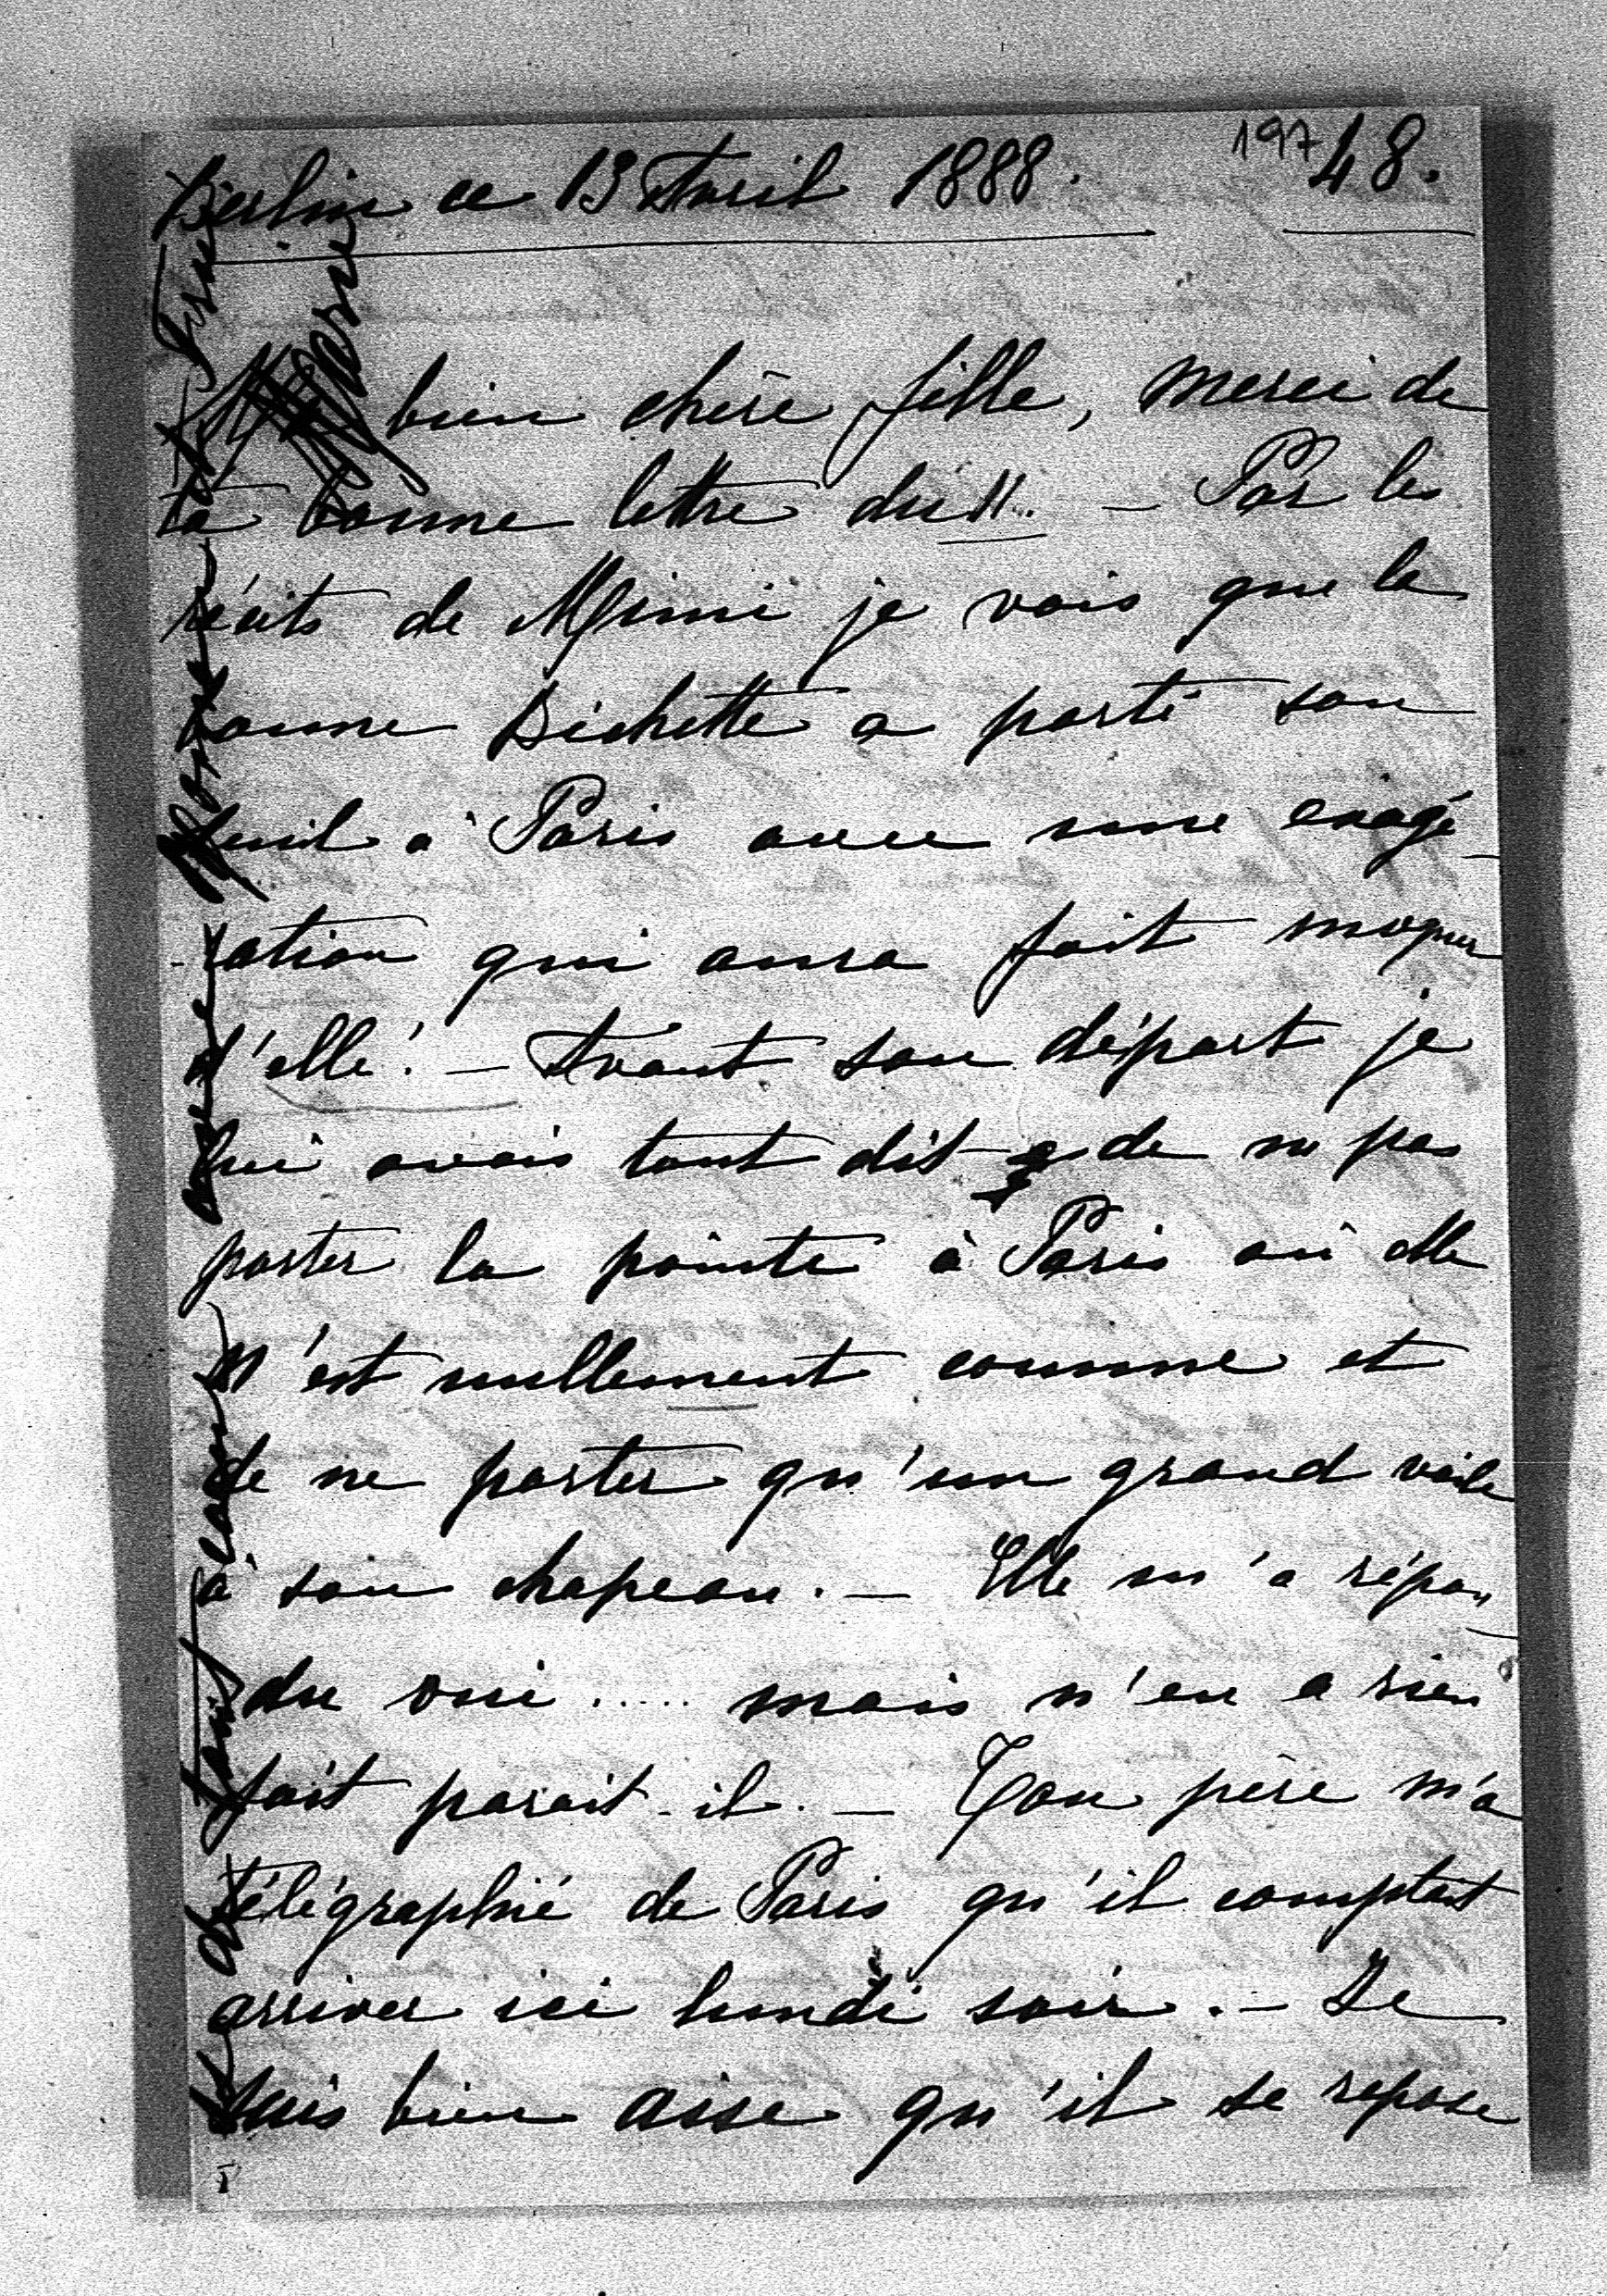 Berlin ce 13 Avril 1888.
197 48.
Ma bien chère fille, merci de
ta bonne lettre du 11. — Par les
récits de Mimi je vois que la
bonne Bichette a porté son
deuil à Paris avec une exagé-
-ration qui aura fait moquer
d'elle! — Avant son départ je
lui avais tant dit de ne pas
porter la pointe à Paris où elle
n'est nullement connue et
de ne porter qu'un grand voile
à son chapeau. — Elle m'a répon-
du oui ..... mais n'en a rien
fait parait-il. — Ton père m'a
télégraphié de Paris qu'il comptait
arriver ici lundi soir. — Je
suis bien aise qu'il se repose